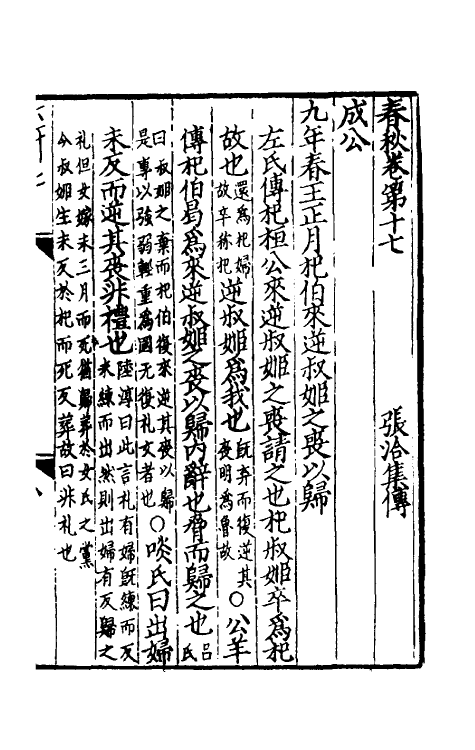 春秋卷第十七 張洽集傳
成公
九年春王正月杞伯來逆叔姬之喪以歸
左氏傳杞桓公來逆叔姬之喪請之也杞叔姬卒爲杞
故也還爲杞婦故卒稱杞逆叔姬爲我也既弃而復逆其喪明爲魯故○公羊
傳杞伯曷爲來逆叔姬之喪以歸内辭也脅而歸之也吕氏
曰叔姬之棄而杞伯復來逆其喪以歸是事以強弱輕重爲國无復礼文者也○啖氏曰出婦
未反而逆其喪非禮也陸淳曰此言礼有婦既練而反未練而出然則出婦有反歸之
礼但女嫁未三月而死猶歸葬於女氏之黨今叔姬生未反於杞而死反葬故曰非礼也